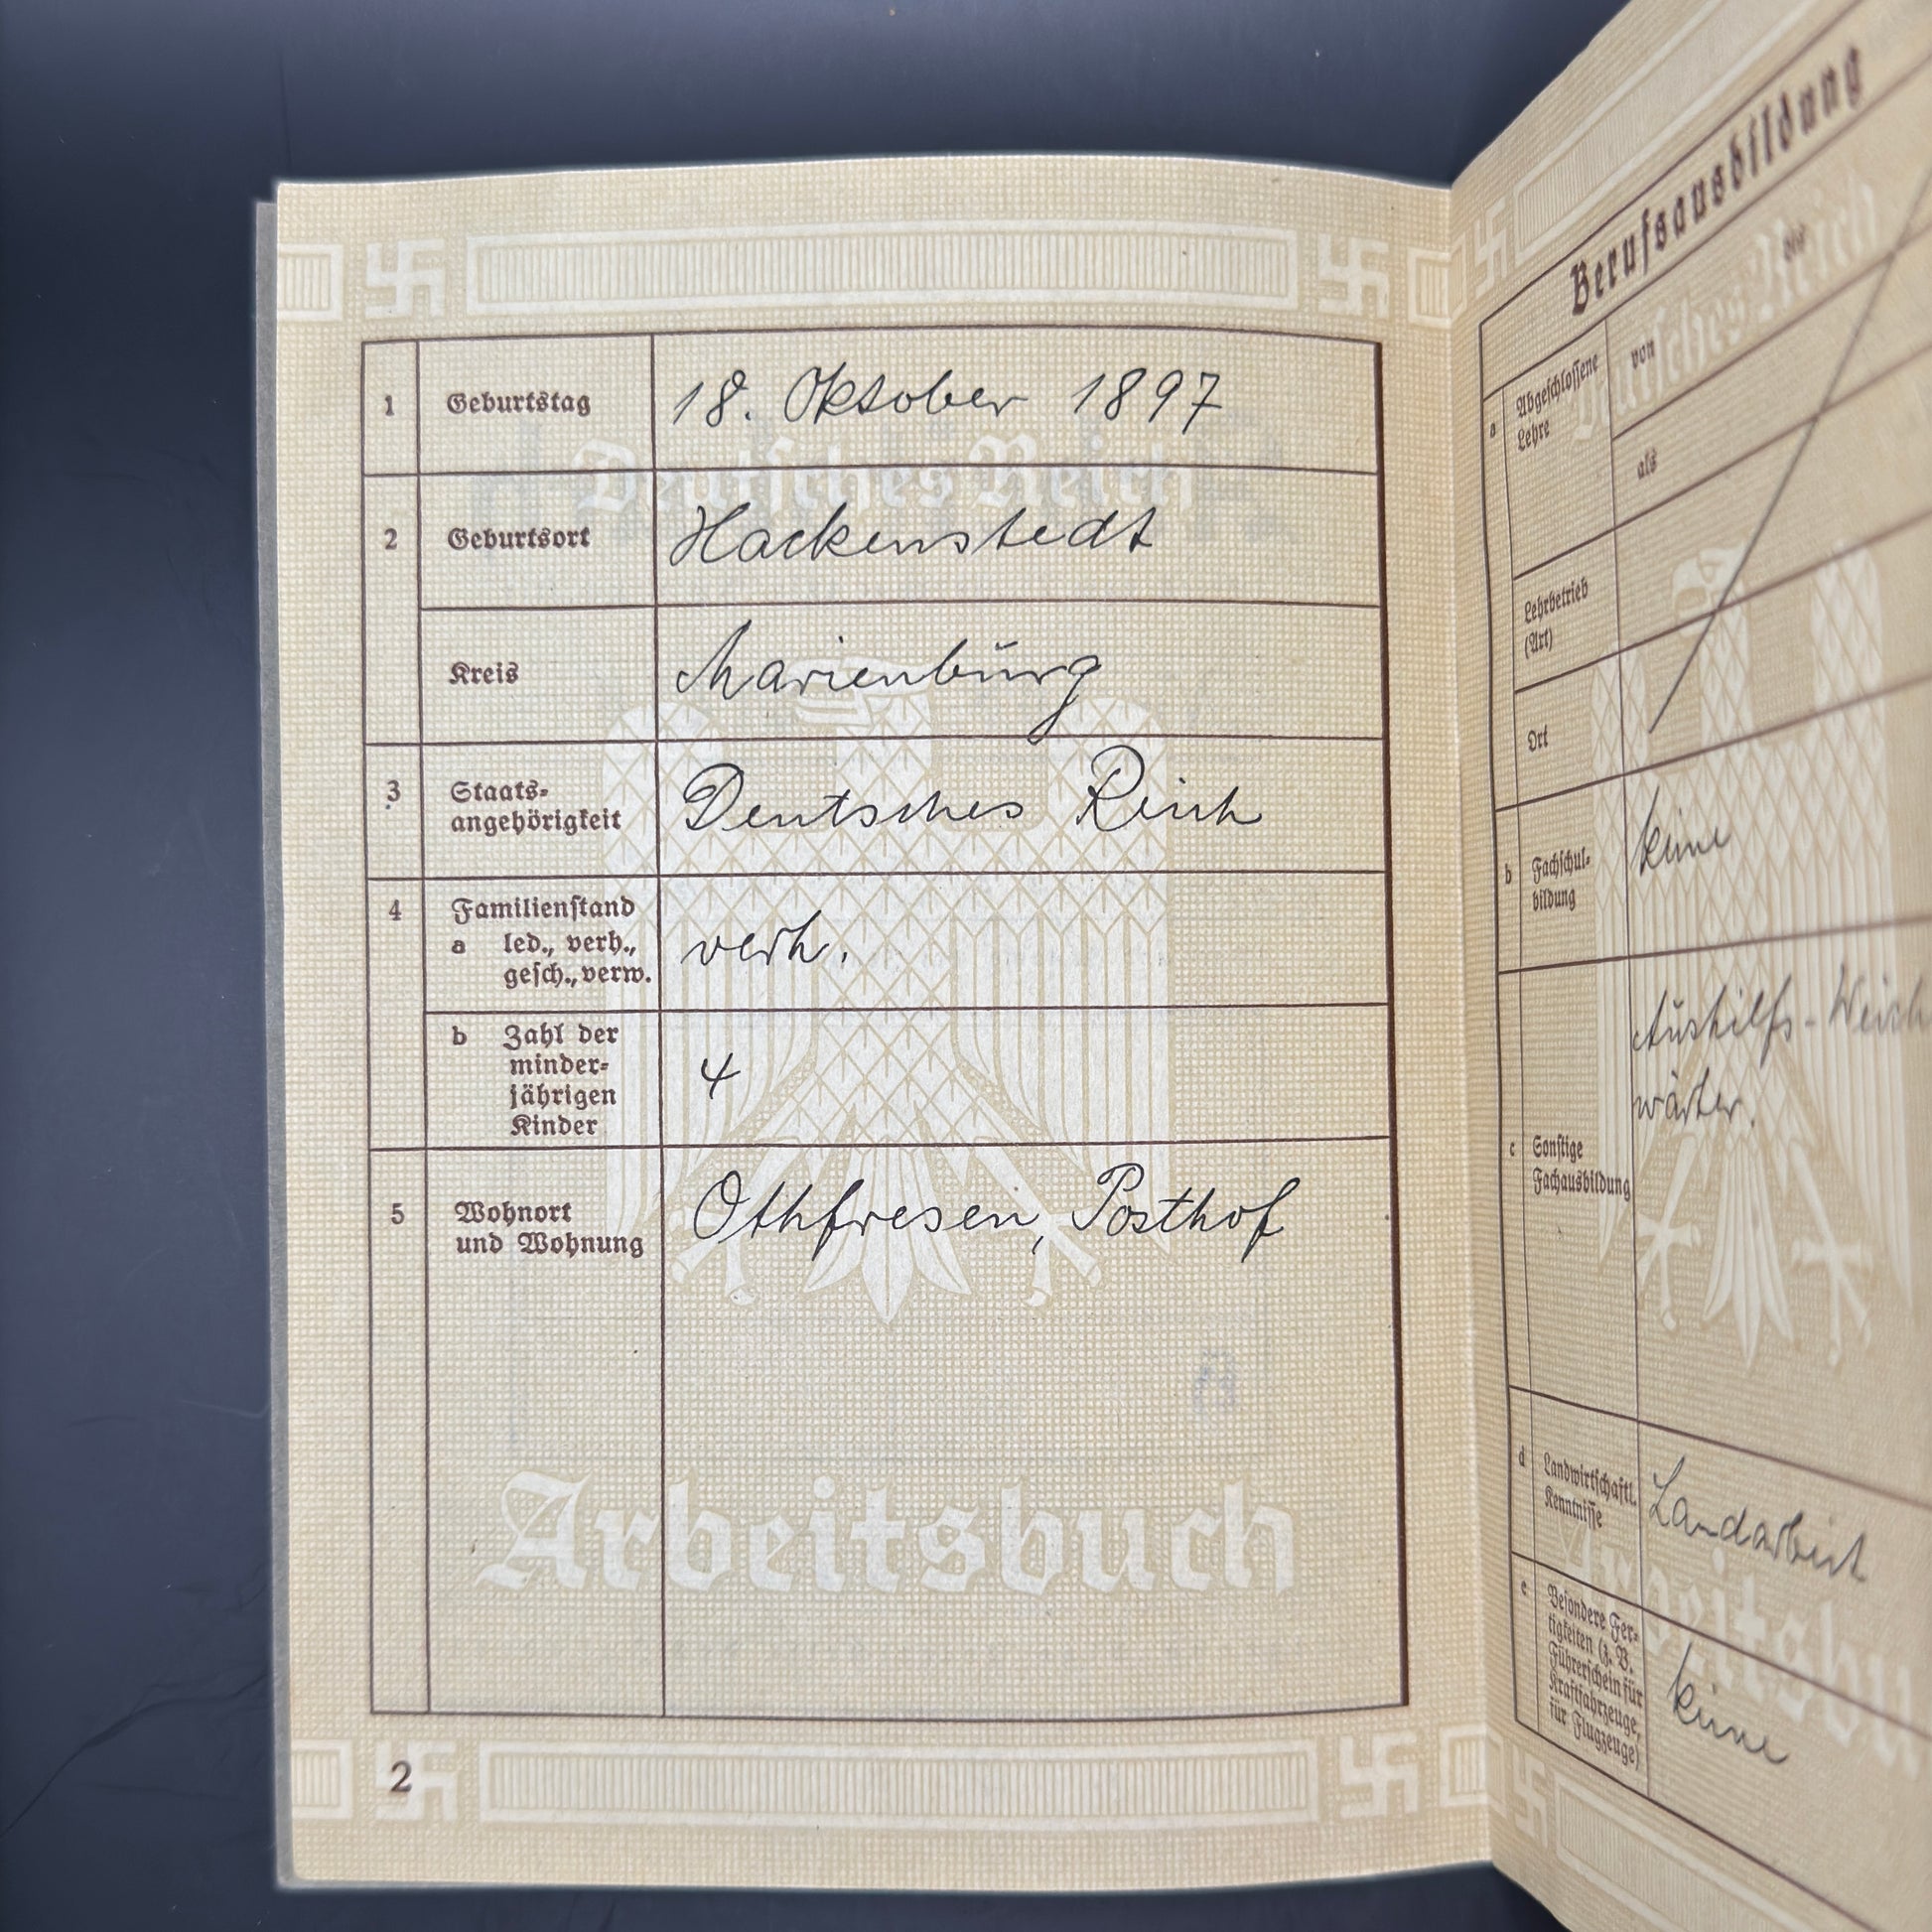 1 Geburtstag 18. Oktober 1897
Deutsches Reich
2 Geburtsort Hackenstedt
Kreis Marienburg
3 Staats-
angehörigkeit Deutsches Reich
4 Familienstand
a led., verh.,
gesch., verw. verh.
b Zahl der
minder-
jährigen
Kinder 4
5 Wohnort
und Wohnung Othfresen, Posthof
Arbeitsbuch
2
Berufsausbildung
a Abgeschlossene
Lehre
von
bis
als
Lehrbetrieb
(Art)
Ort
b Fachschul-
bildung keine
Aushilfs-Weich
wärter.
c Sonstige
Fachausbildung
d Landwirtschaftl.
Kenntnisse Landarbeit
e Besondere Fer-
tigkeiten (z. B.
Führerschein für
Kraftfahrzeuge,
für Flugzeuge) keine